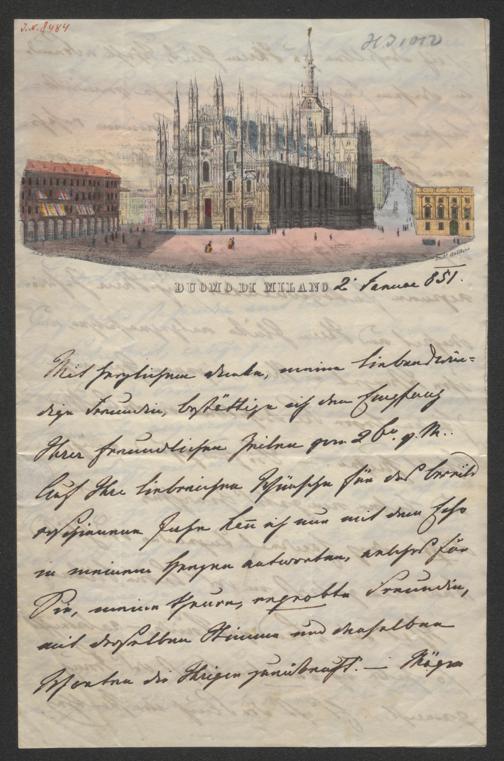 I.N. 8484
H.I.N.
DUOMO DI MILANO 2' Januar 851.
Mit herzlichem Danke, meine liebenswür=
dige Freundin, bestättige ich den Empfang
Ihrer freundlichen Zeilen vom 26ten v. M..
Auf Ihre liebreichen Wünsche für das bereits
erschienene Jahr kann ich nur mit dem Echo
in meinem Herzen antworten, welches für
Sie, meine theure, erprobte Freundin,
mit derselben Stimme und denselben
Worten die Ihrigen zurückruft. — Mögen